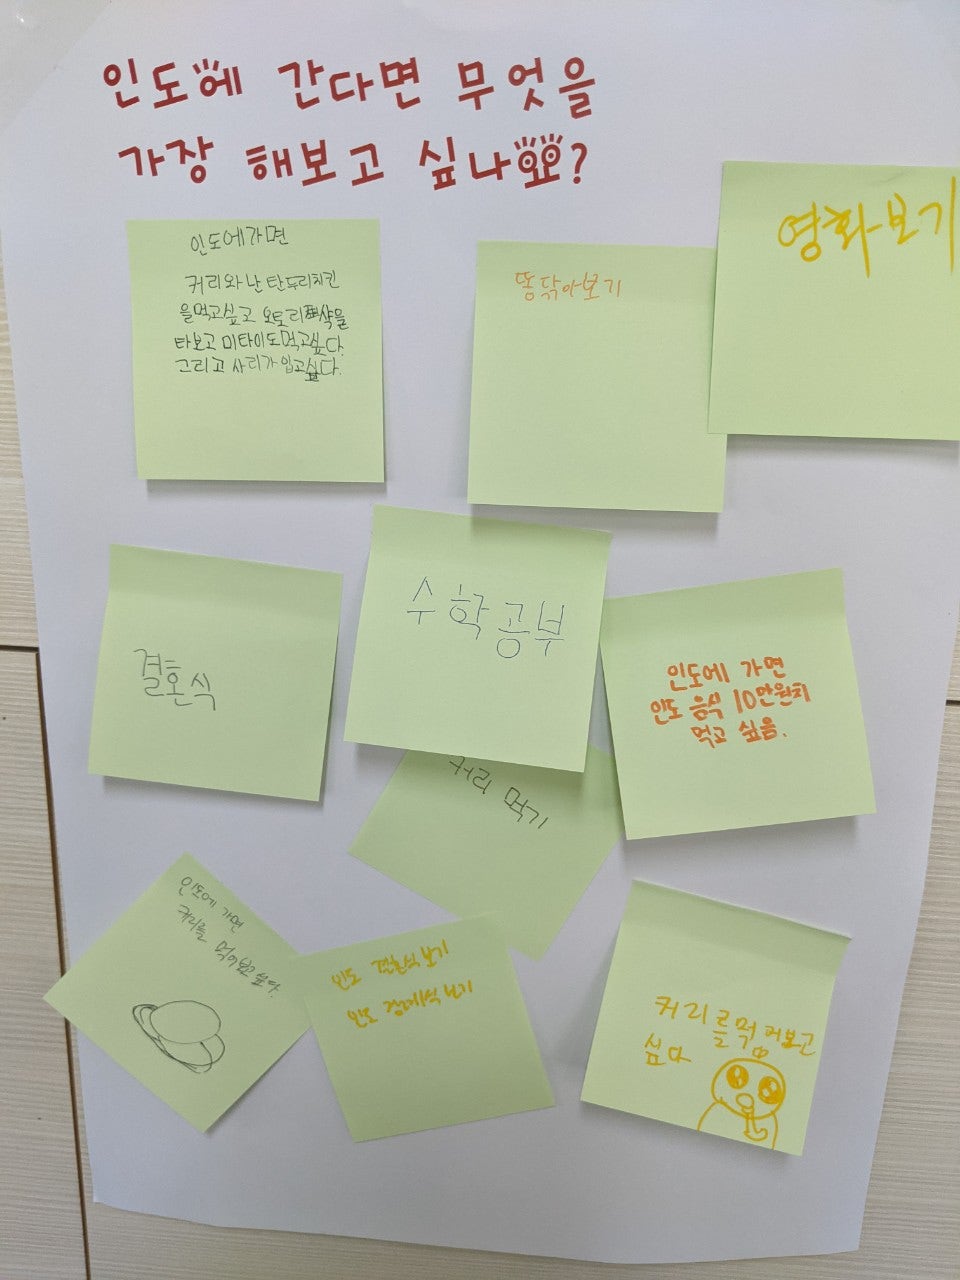 인도에 간다면 무엇을
가장 해보고 싶나요?
인도에가면
커리와 난 탄두리치킨
을먹고싶고 오토리샥을
타보고 미타이도먹고싶다.
그리고 사리가 입고싶다.
똥닦아보기
영화보기
결혼식
수학공부
인도에 가면
인도 음식 10만원치
먹고 싶음.
커리 먹기
인도에 가면
커리를 먹어보고 싶다.
인도 결혼식 보기
인도 장례식 보기
커리를먹어보고
싶다